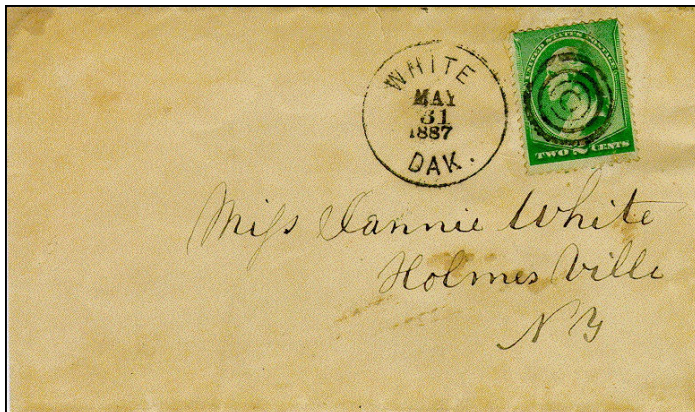 WHITE
MAY
31
1887
DAK.
UNITED STATES POSTAGE
TWO 2 CENTS
Miss White
Holmes Ville
N Y